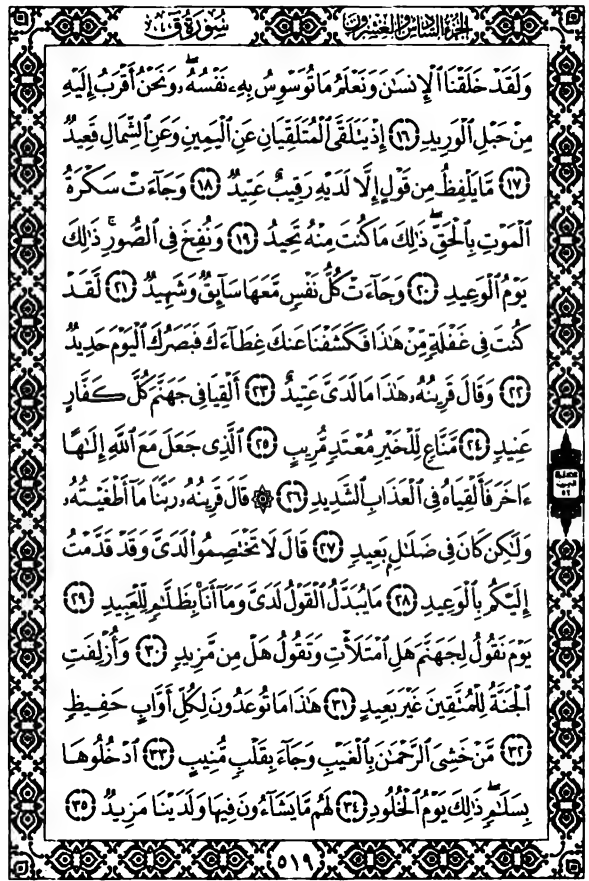 الجزء السادس والعشرون سورة ق
وَلَقَدْ خَلَقْنَا ٱلْإِنسَٰنَ وَنَعْلَمُ مَا تُوَسْوِسُ بِهِۦ نَفْسُهُۥ ۖ وَنَحْنُ أَقْرَبُ إِلَيْهِ
مِنْ حَبْلِ ٱلْوَرِيدِ ١٦ إِذْ يَتَلَقَّى ٱلْمُتَلَقِّيَانِ عَنِ ٱلْيَمِينِ وَعَنِ ٱلشِّمَالِ قَعِيدٌ
١٧ مَّا يَلْفِظُ مِن قَوْلٍ إِلَّا لَدَيْهِ رَقِيبٌ عَتِيدٌ ١٨ وَجَآءَتْ سَكْرَةُ
ٱلْمَوْتِ بِٱلْحَقِّ ۖ ذَٰلِكَ مَا كُنتَ مِنْهُ تَحِيدُ ١٩ وَنُفِخَ فِى ٱلصُّورِ ۚ ذَٰلِكَ
يَوْمُ ٱلْوَعِيدِ ٢٠ وَجَآءَتْ كُلُّ نَفْسٍ مَّعَهَا سَآئِقٌ وَشَهِيدٌ ٢١ لَّقَدْ
كُنتَ فِى غَفْلَةٍ مِّنْ هَٰذَا فَكَشَفْنَا عَنكَ غِطَآءَكَ فَبَصَرُكَ ٱلْيَوْمَ حَدِيدٌ
٢٢ وَقَالَ قَرِينُهُۥ هَٰذَا مَا لَدَىَّ عَتِيدٌ ٢٣ أَلْقِيَا فِى جَهَنَّمَ كُلَّ كَفَّارٍ
عَنِيدٍ ٢٤ مَّنَّاعٍ لِّلْخَيْرِ مُعْتَدٍ مُّرِيبٍ ٢٥ ٱلَّذِى جَعَلَ مَعَ ٱللَّهِ إِلَٰهًا
ءَاخَرَ فَأَلْقِيَاهُ فِى ٱلْعَذَابِ ٱلشَّدِيدِ ٢٦ ۞ قَالَ قَرِينُهُۥ رَبَّنَا مَآ أَطْغَيْتُهُۥ
وَلَٰكِن كَانَ فِى ضَلَٰلٍۭ بَعِيدٍ ٢٧ قَالَ لَا تَخْتَصِمُوا۟ لَدَىَّ وَقَدْ قَدَّمْتُ
إِلَيْكُم بِٱلْوَعِيدِ ٢٨ مَا يُبَدَّلُ ٱلْقَوْلُ لَدَىَّ وَمَآ أَنَا۠ بِظَلَّٰمٍ لِّلْعَبِيدِ ٢٩
يَوْمَ نَقُولُ لِجَهَنَّمَ هَلِ ٱمْتَلَأْتِ وَتَقُولُ هَلْ مِن مَّزِيدٍ ٣٠ وَأُزْلِفَتِ
ٱلْجَنَّةُ لِلْمُتَّقِينَ غَيْرَ بَعِيدٍ ٣١ هَٰذَا مَا تُوعَدُونَ لِكُلِّ أَوَّابٍ حَفِيظٍ
٣٢ مَّنْ خَشِىَ ٱلرَّحْمَٰنَ بِٱلْغَيْبِ وَجَآءَ بِقَلْبٍ مُّنِيبٍ ٣٣ ٱدْخُلُوهَا
بِسَلَٰمٍ ۖ ذَٰلِكَ يَوْمُ ٱلْخُلُودِ ٣٤ لَهُم مَّا يَشَآءُونَ فِيهَا وَلَدَيْنَا مَزِيدٌ ٣٥
الحزب
٥٢
٥١٩